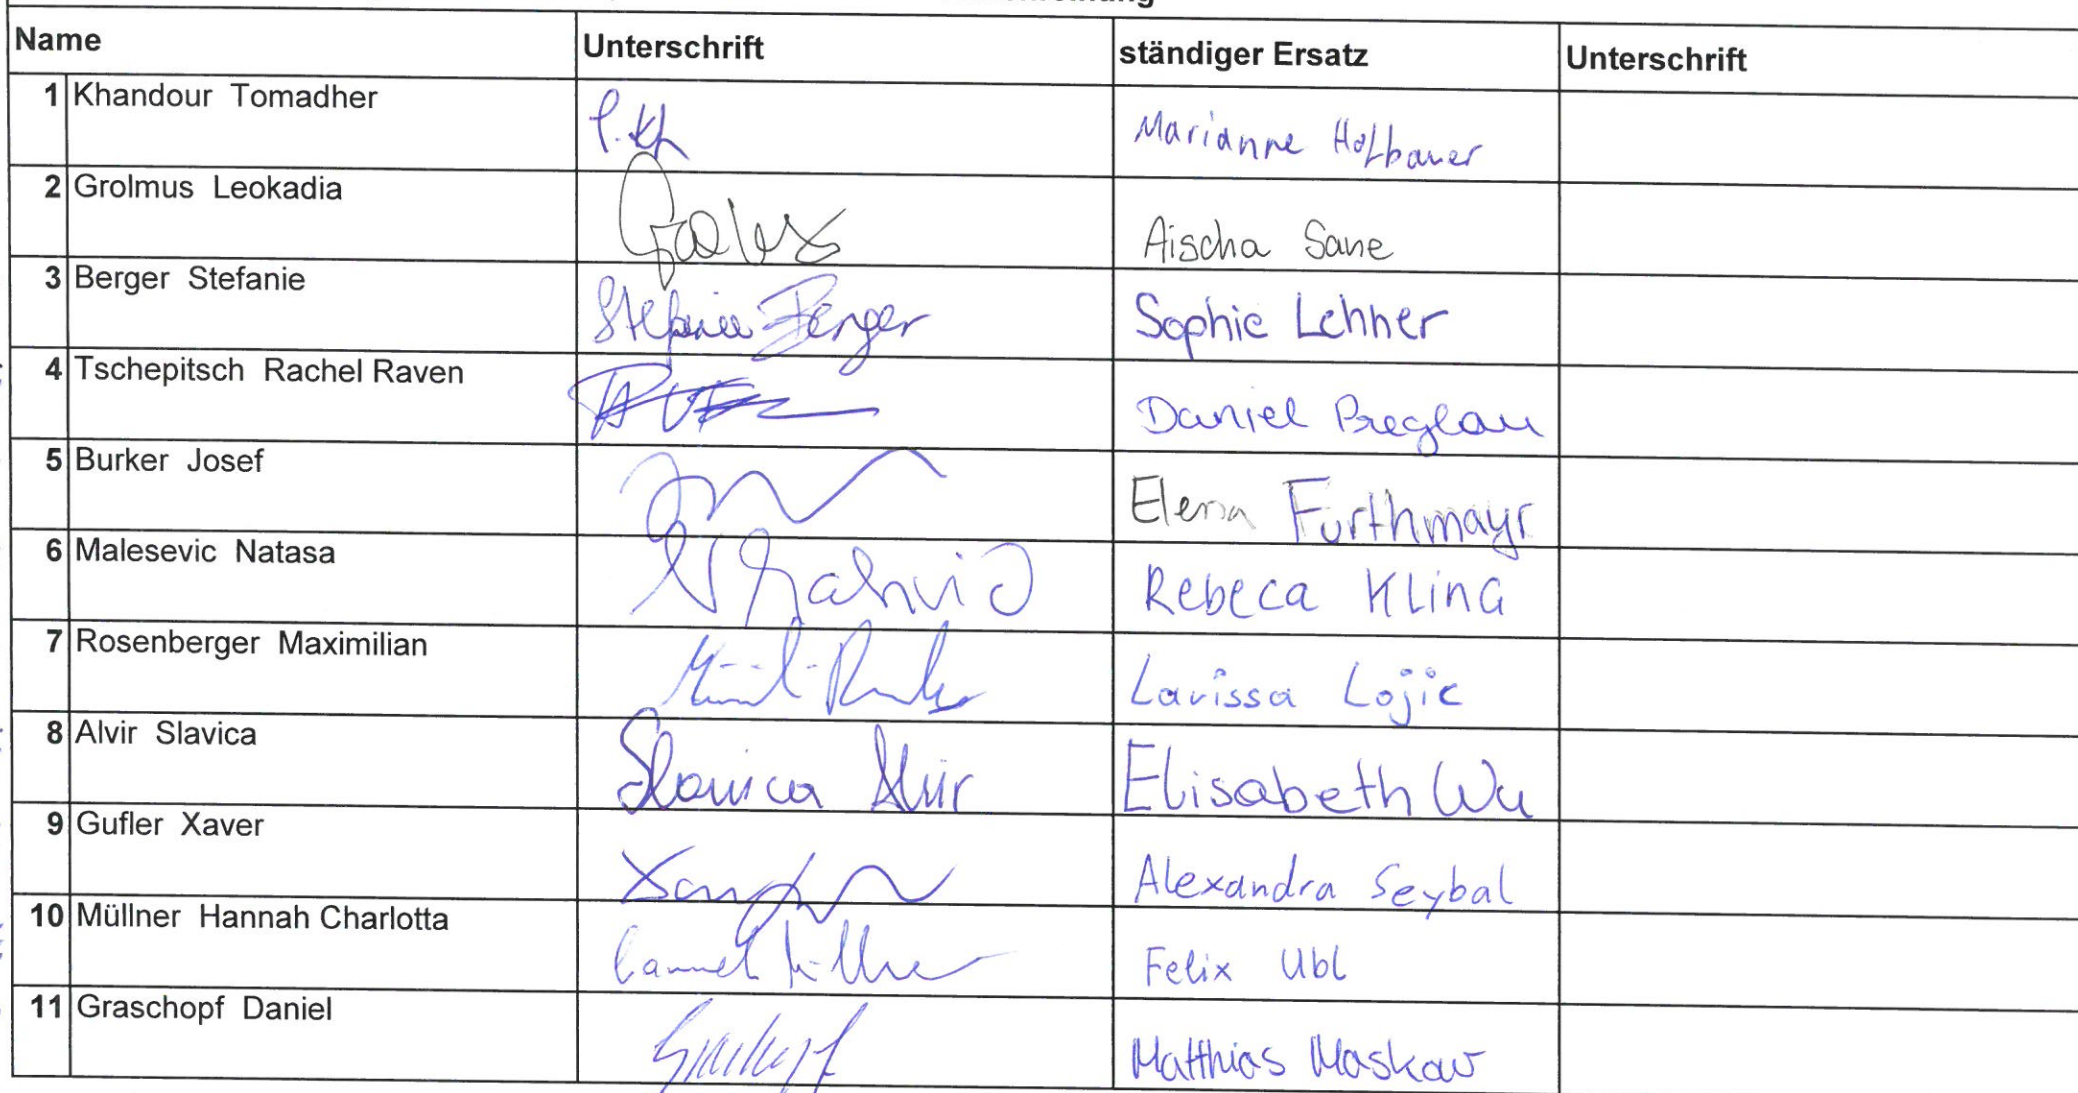 Name Unterschrift ständiger Ersatz Unterschrift
1 Khandour Tomadher Marianne Hofbauer
2 Grolmus Leokadia Aischa Sane
3 Berger Stefanie Stefanie Berger Sophie Lehner
4 Tschepitsch Rachel Raven Daniel Breglau
5 Burker Josef Elena Furthmayr
6 Malesevic Natasa Rebeca Kling
7 Rosenberger Maximilian Larissa Lojic
8 Alvir Slavica Slavica Alvir Elisabeth Wu
9 Gufler Xaver Alexandra Seybal
10 Müllner Hannah Charlotta Felix Ubl
11 Graschopf Daniel Matthias Maskow